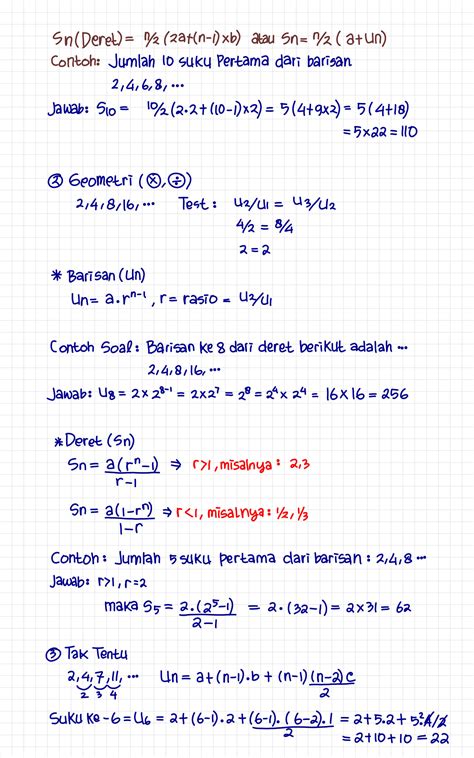 Sn(Deret) = n/2 (2a+(n-1)xb) atau Sn = n/2 (a+Un)
Contoh: Jumlah 10 suku Pertama dari barisan
2,4,6,8, ...
Jawab: S10 = 10/2 (2.2+(10-1)x2) = 5(4+9x2) = 5(4+18)
= 5x22 = 110
② Geometri (⊗,⊕)
2,4,8,16, ... Test: U2/U1 = U3/U2
4/2 = 8/4
2 = 2
* Barisan (Un)
Un = a.r^n-1, r = rasio = U2/U1
Contoh Soal: Barisan ke 8 dari deret berikut adalah ...
2,4,8,16, ...
Jawab: U8 = 2 x 2^8-1 = 2x2^7 = 2^8 = 2^4 x 2^4 = 16 x 16 = 256
* Deret (Sn)
Sn = a(r^n-1)/r-1 ⇒ r>1, misalnya: 2,3
Sn = a(1-r^n)/1-r ⇒ r<1, misalnya: 1/2, 1/3
Contoh: Jumlah 5 suku pertama dari barisan: 2,4,8 ...
Jawab: r>1, r=2
maka S5 = 2.(2^5-1)/2-1 = 2.(32-1) = 2x31 = 62
③ Tak Tentu
2,4,7,11, ... Un = a+(n-1).b + (n-1)(n-2)c/2
2 3 4
Suku ke-6 = U6 = 2+(6-1).2+(6-1).(6-2).1/2 = 2+5.2+5.4/2
2
= 2+10+10 = 22